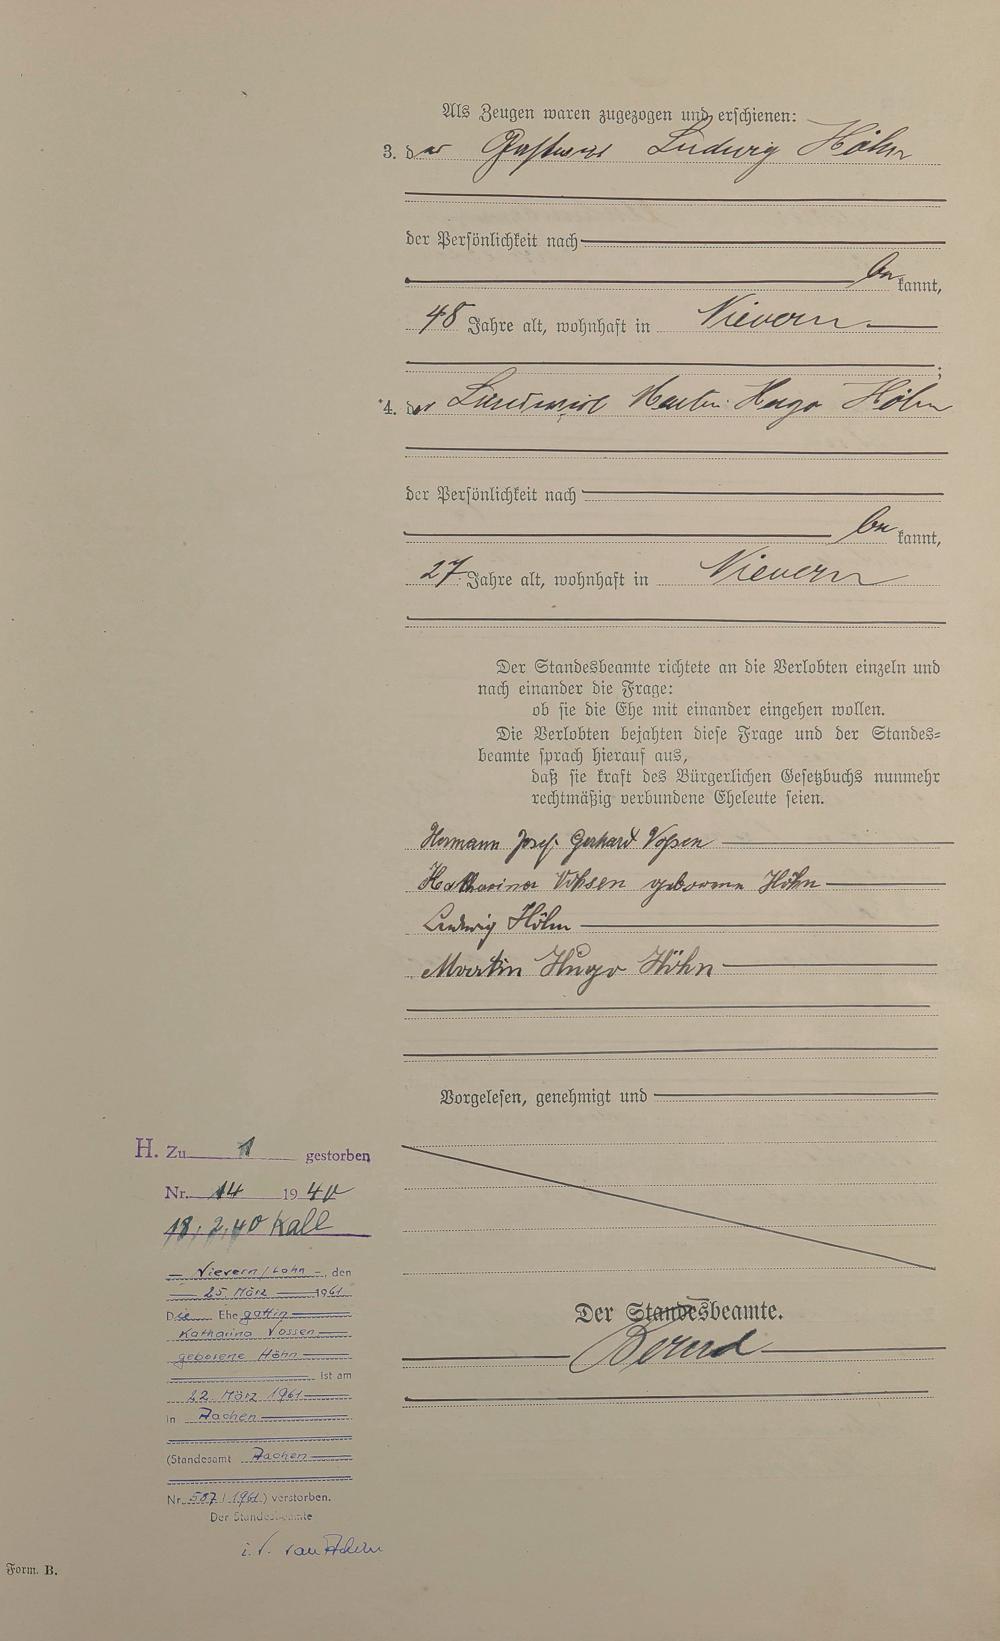 Als Zeugen waren zugezogen und erschienen:
3. der Gastwirt Ludwig Höhn
der Persönlichkeit nach
be kannt,
48 Jahre alt, wohnhaft in Nievern
;
4. der Martin Hugo Höhn
der Persönlichkeit nach
be kannt,
27 Jahre alt, wohnhaft in Nievern
Der Standesbeamte richtete an die Verlobten einzeln und
nach einander die Frage:
ob sie die Ehe mit einander eingehen wollen.
Die Verlobten bejahten diese Frage und der Standes-
beamte sprach hierauf aus,
daß sie kraft des Bürgerlichen Gesetzbuchs nunmehr
rechtmäßig verbundene Eheleute seien.
Hermann Josef Gerhard Voßen
Katharina Voßsen geborene Höhn
Ludwig Höhn
Martin Hugo Höhn
Vorgelesen, genehmigt und
Der Standesbeamte.
Bernd
H. Zu 1 gestorben
Nr. 14 1940
18.2.40 Kall
Nievern/Lahn, den
25. März 1961
Die Ehegattin
Katharina Vossen
geborene Höhn
ist am
22. März 1961
in Aachen
(Standesamt Aachen
Nr. 587/1961) verstorben.
Der Standesbeamte
i.V.
Form. B.